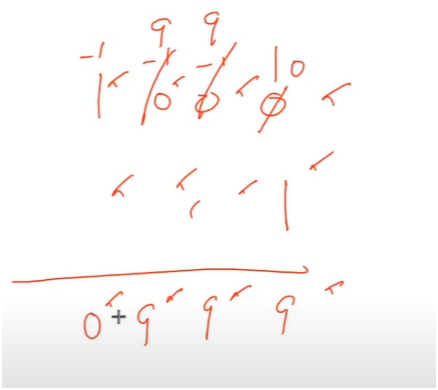 9 9
-1 -1 -1 10
1 0 0 0
1
0 9 9 9